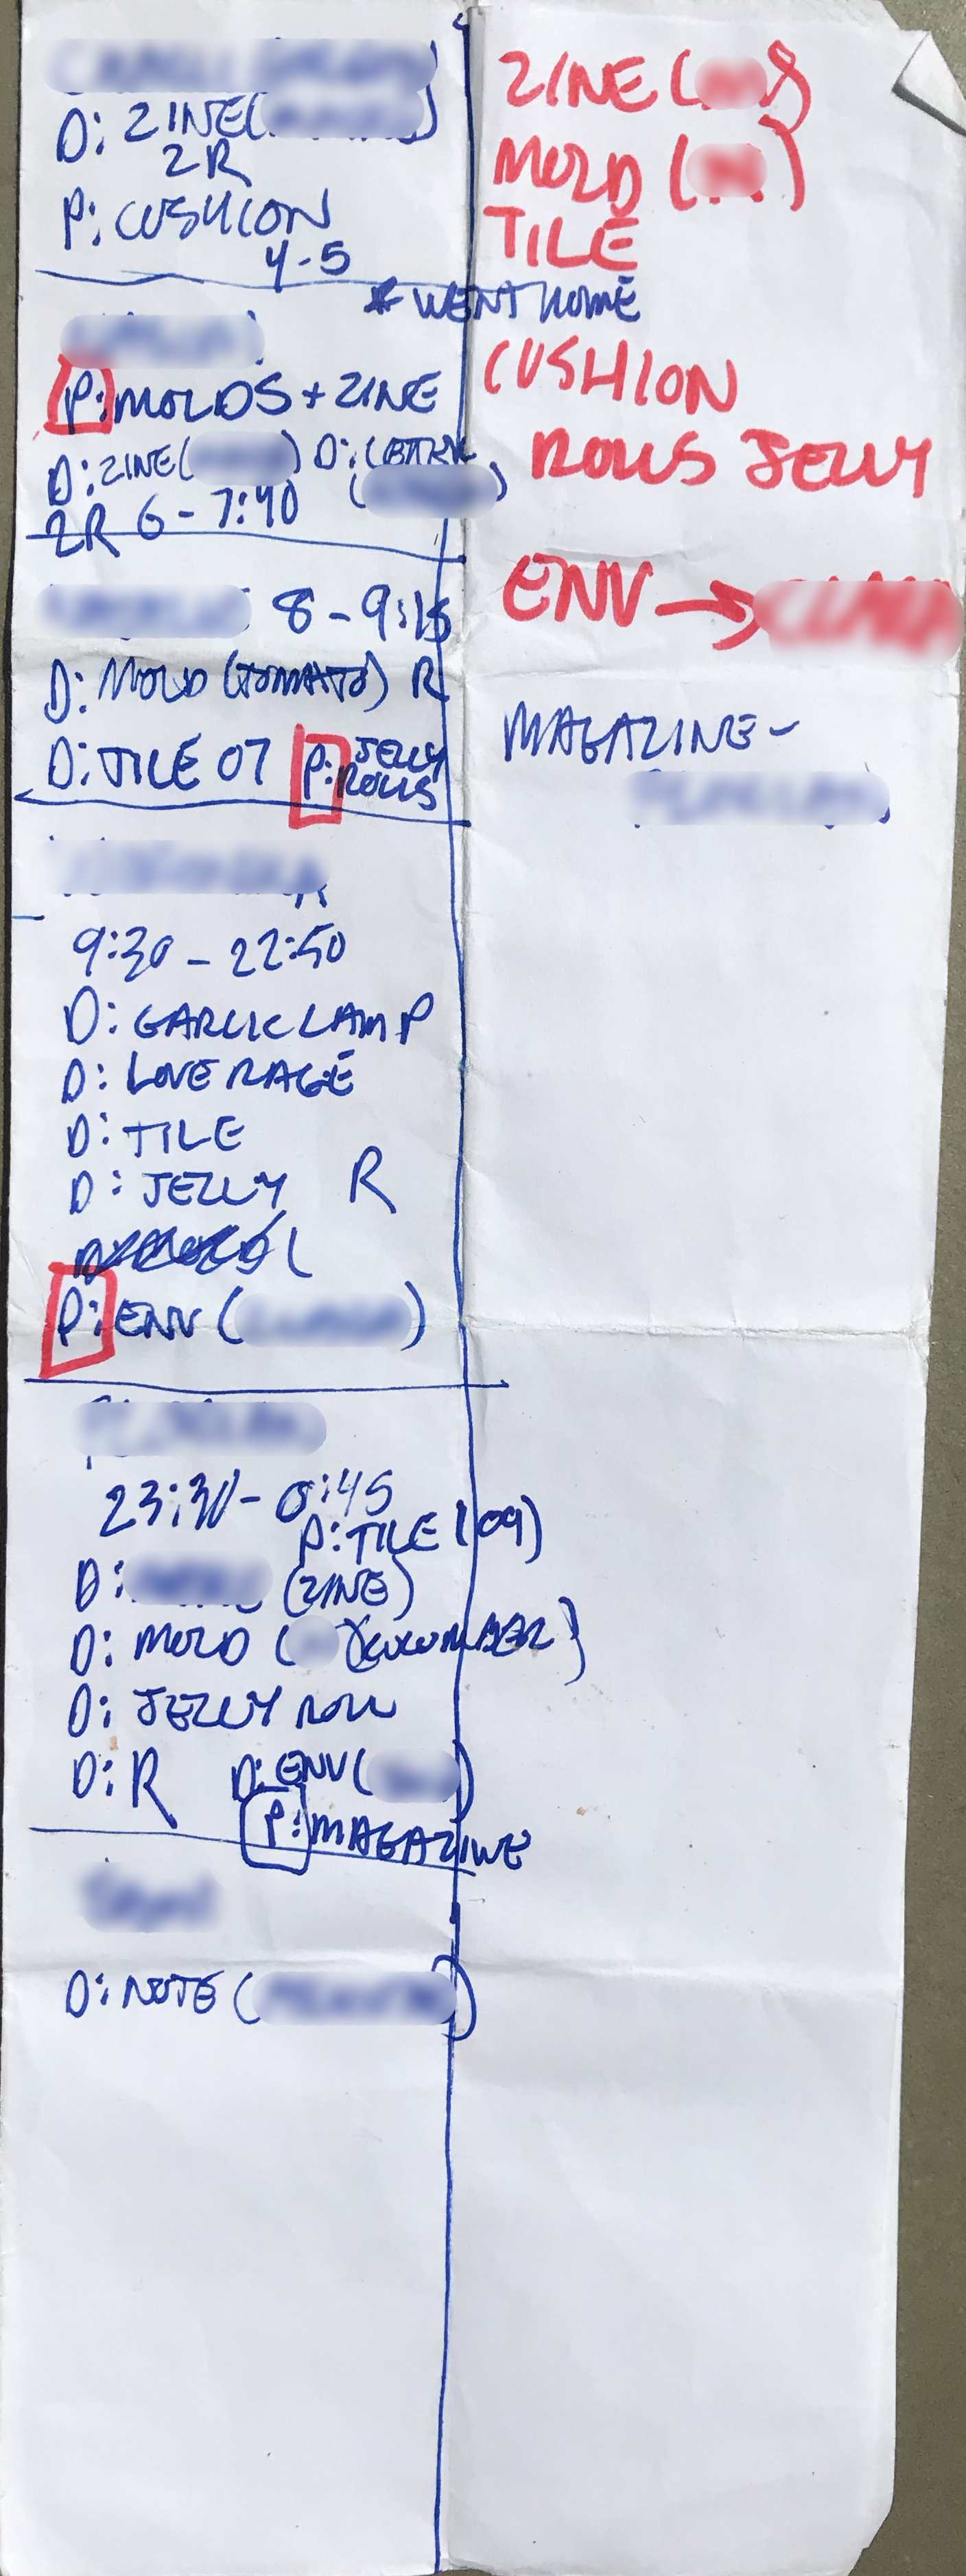 D: ZINE(
2R
P: CUSHION
4-5
P: MOLDS + ZINE
D: ZINE( ) D:
2R 6 - 7:40
8 - 9:15
D: MOLD (TOMATO) R
D: TILE 07 P: JELLY
ROLLS
9:30 - 22:50
D: GARLIC LAMP
D: LOVE RAGE
D: TILE
D: JELLY R
P: ENV ( )
23:30 - 0:45
P: TILE (09)
D: (ZINE)
D: MOLD ( )(CUCUMBER)
D: JELLY ROLL
D: R D: ENV( )
P: MAGAZINE
D: NOTE ( )
ZINE ( )
MOLD ( )
TILE
* WENT HOME
CUSHION
ROLLS JELLY
ENV →
MAGAZINE -